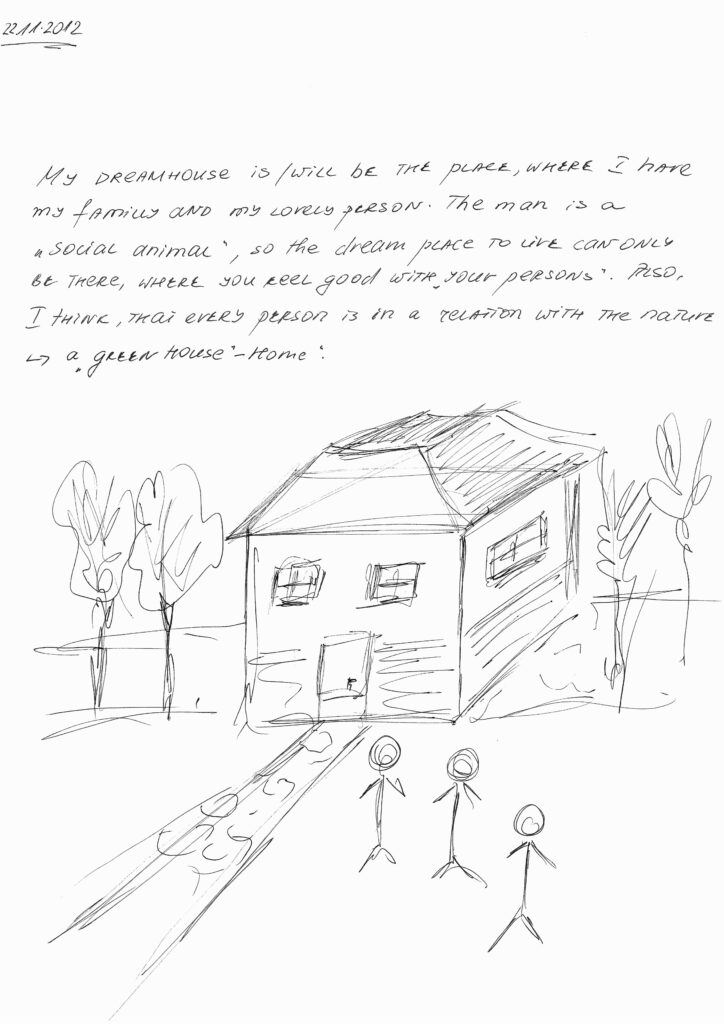 22.11.2012
My DREAMHOUSE is/will BE THE PLACE, WHERE I have
my family AND my LOVELY PERSON. The man is a
„social animal“, so the dream PLACE TO LIVE CAN ONLY
BE THERE, WHERE YOU FEEL good WITH „your PERSONS“. ALSO,
I THINK, that EVERY PERSON is in a relation WITH THE nature
↳ a „GREEN HOUSE“-Home“.